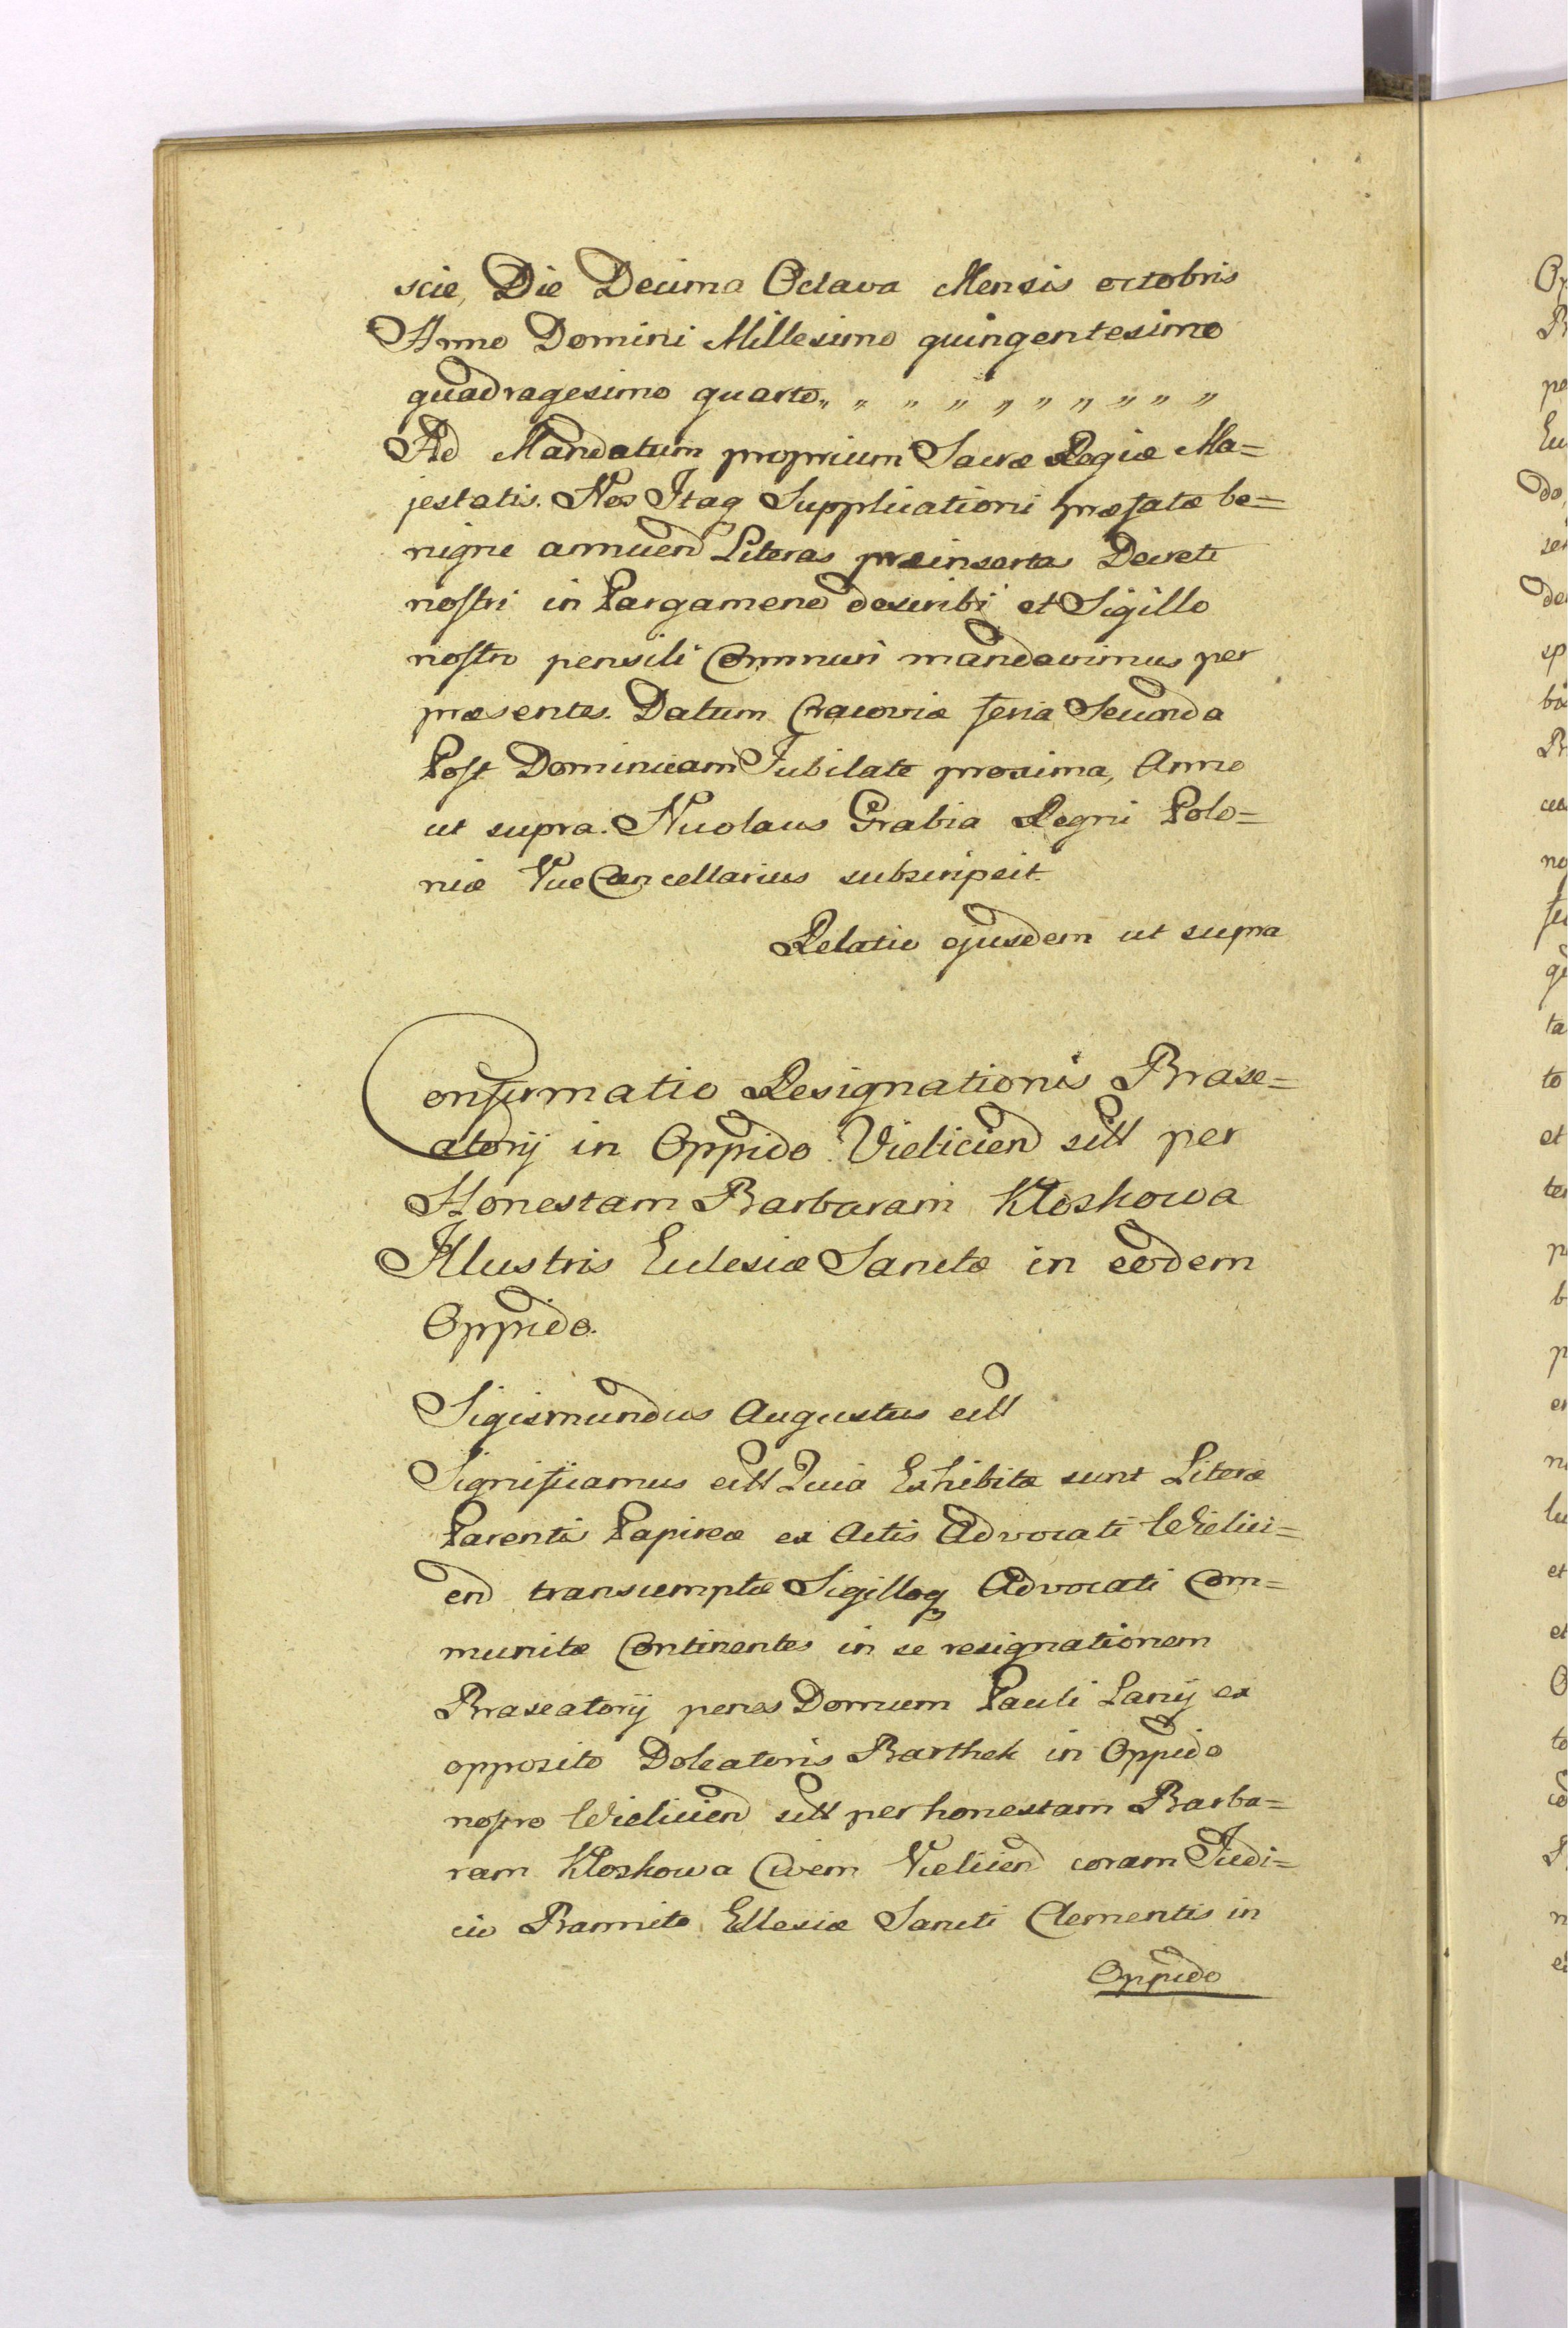 scie, Die Decima Octava Mensis octobris
Anno Domini Millesimo quingentesimo
quadragesimo quarto „ „ „ „ „ „ „ „ „ „
Ad Mandatum proprium Sacræ Regiæ Ma=
jestatis. Nos Itaq Supplicationi præfatæ be=
nigne annuend Literas præinsertas Decreti
nostri in Pargameno describi et Sigillo
nostro pensili Communiri mandavimus per
præsentes. Datum Cracoviæ feria Secunda
Post Dominicam Jubilate proxima, Anno
ut supra. Nicolaus Grabia Regni Polo=
niæ ViceCancellarius subscripsit.
Relatio ejusdem ut supra
Confirmatio Resignationis Braxe=
atorij in Oppido Vieliciend sitt per
Honestam Barbaram Kloskowa
Illustris Eclesiæ Sanctæ in eodem
Oppido.
Sigismundus Augustus ett
Significamus ett Quia Exhibitæ sunt Literæ
Parenti Papireæ ex Actis Advocati Wielici=
end transumptæ Sigilloq Advocati Com=
munitæ Continentes in se resignationem
Braxeatorij penes Domum Pauli Lanij ex
opposito Doleatoris Barthek in Oppido
nostro Wieliciend sitt per honestam Barba=
ram Kloskowa Civem Vieliciend coram Judi=
cio Bannito Ecclesiæ Sancti Clementis in
Oppido